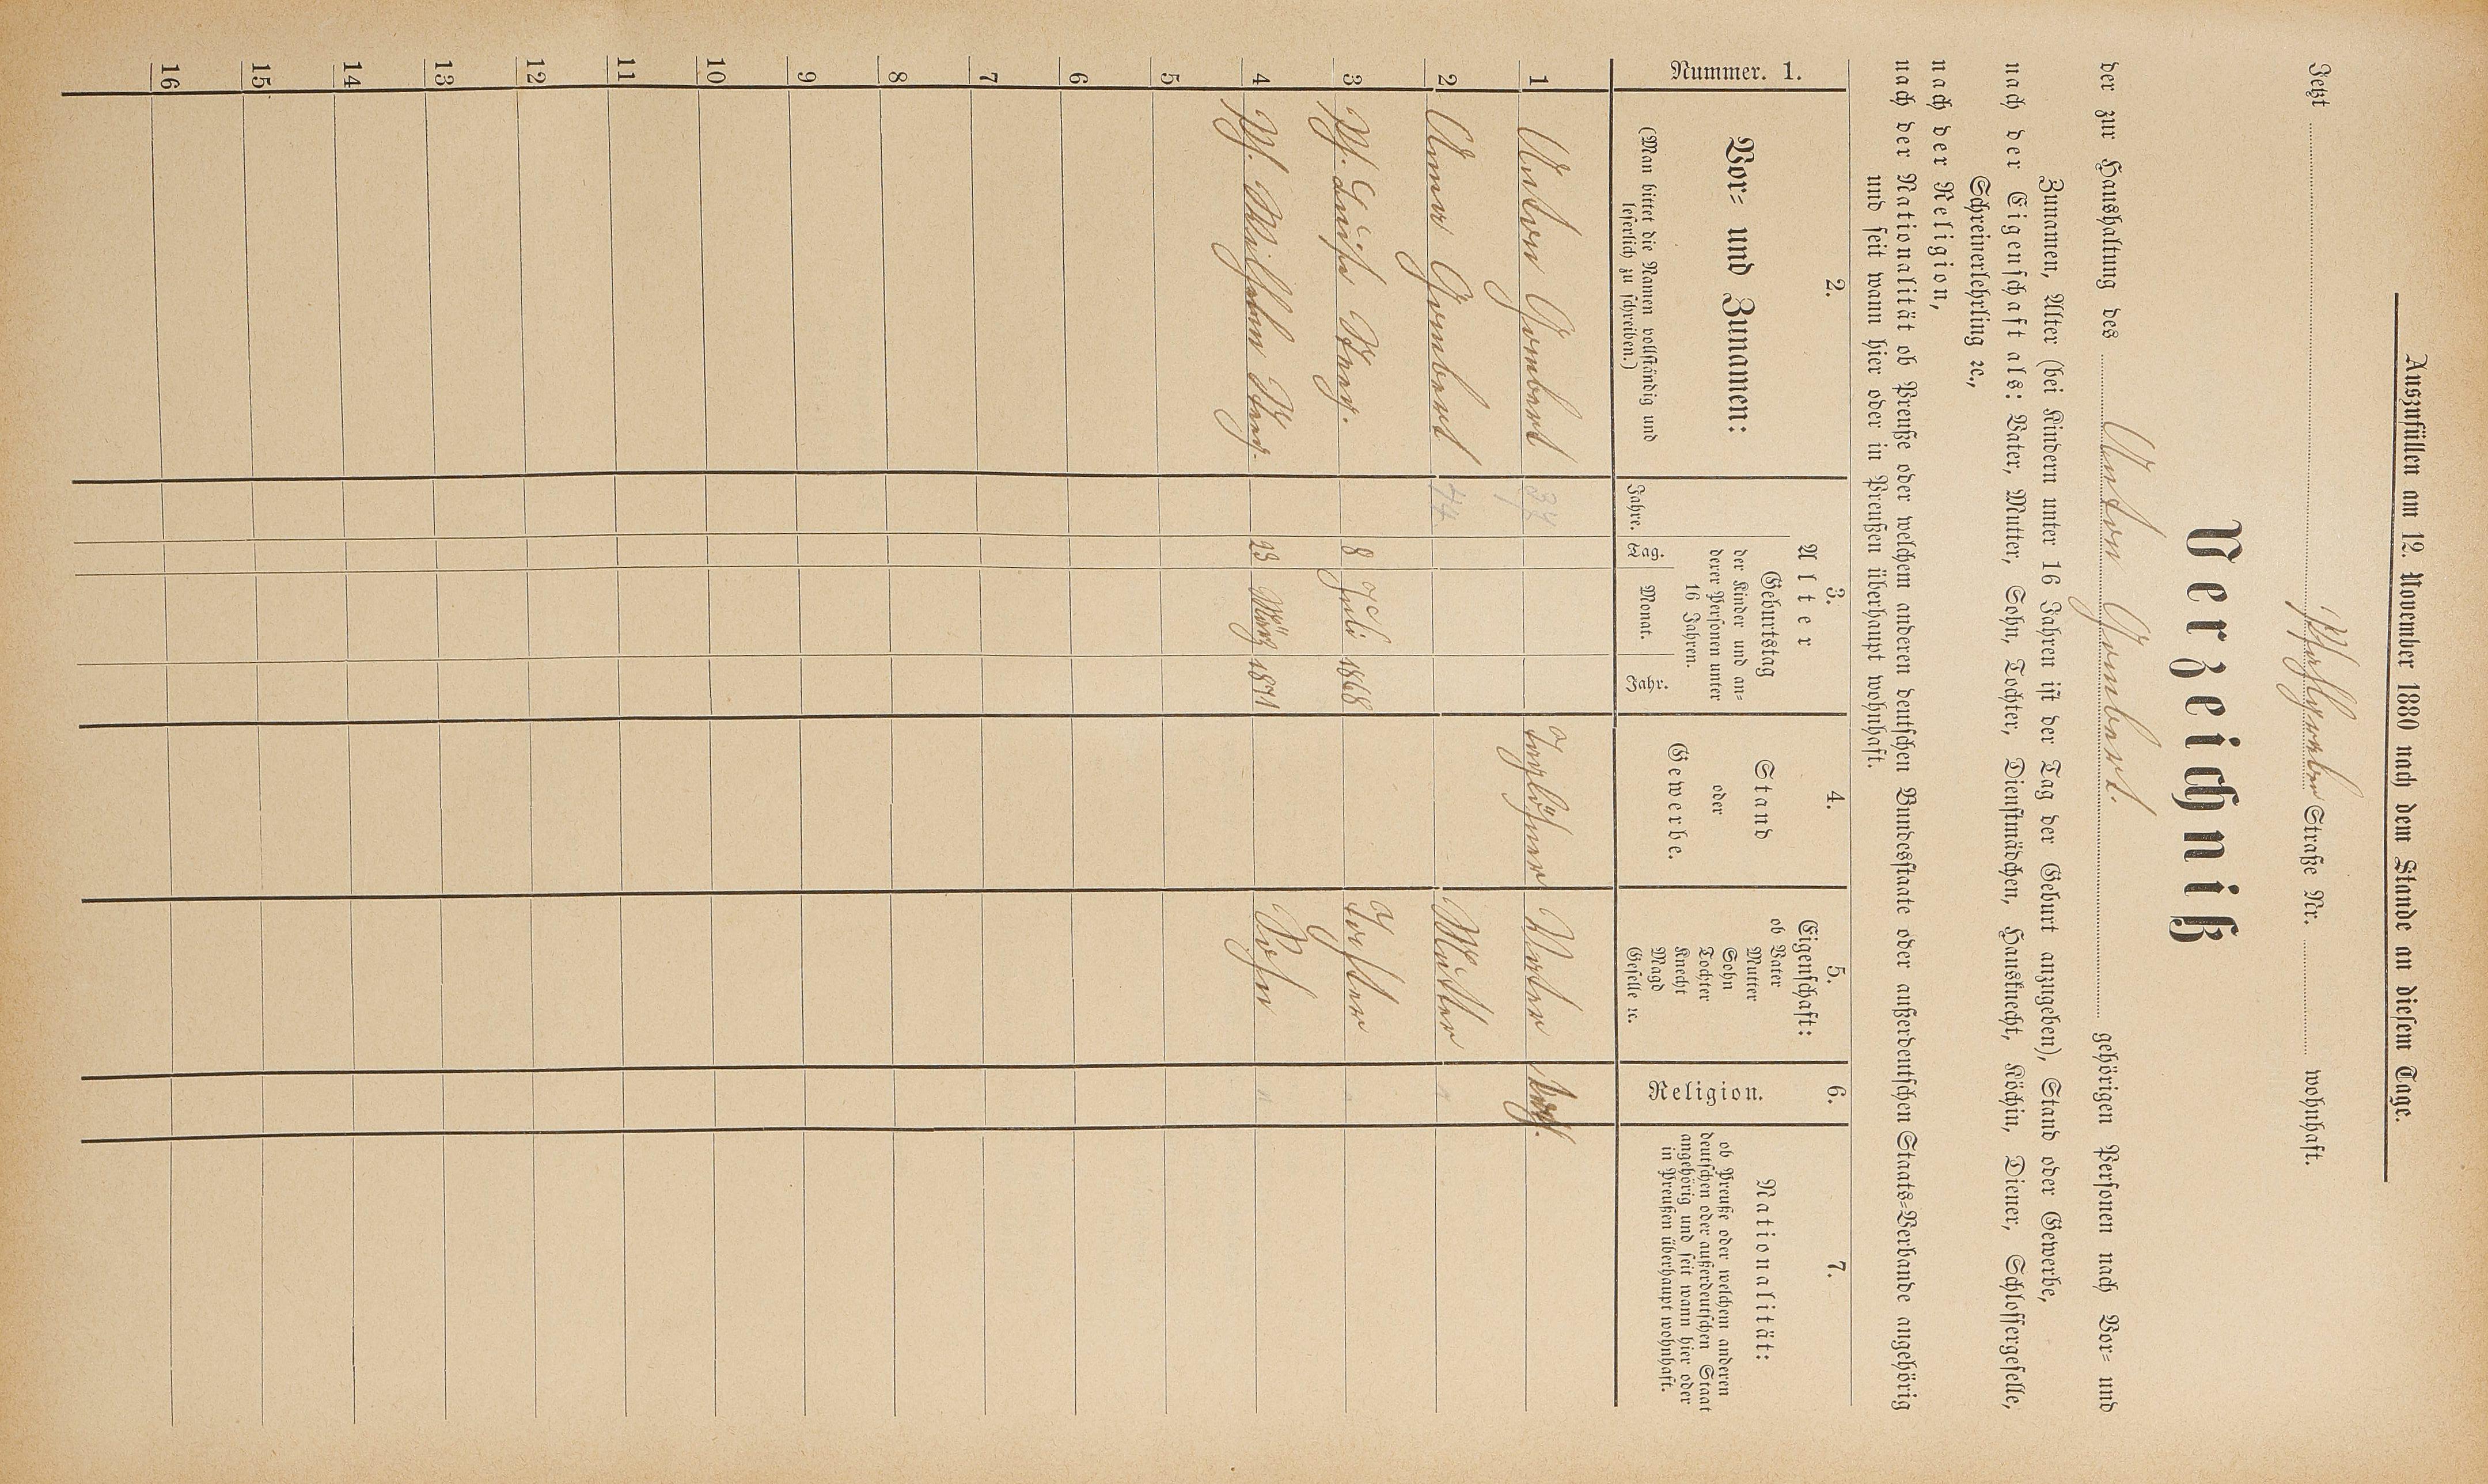 Auszufüllen am 12. November 1880 nach dem Stande an diesem Tage.
Jetzt Straße Nr. wohnhaft.
Verzeichniß
der zur Haushaltung des Anton Gombert. gehörigen Personen nach Vor- und
Zunamen, Alter (bei Kindern unter 16 Jahren ist der Tag der Geburt anzugeben), Stand oder Gewerbe,
nach der Eigenschaft als: Vater, Mutter, Sohn, Tochter, Dienstmädchen, Hausknecht, Köchin, Diener, Schlossergeselle,
Schreinerlehrling ꝛc.,
nach der Religion,
nach der Nationalität ob Preuße oder welchem anderen deutschen Bundesstaate oder außerdeutschen Staats-Verbande angehörig
und seit wann hier oder in Preußen überhaupt wohnhaft.
Nummer. 1.
2.
Vor- und Zunamen:
(Man bittet die Namen vollständig und
leserlich zu schreiben.)
3.
Alter
Jahre.
Geburtstag
der Kinder und an-
derer Personen unter
16 Jahren.
Tag. Monat. Jahr.
4.
Stand
oder
Gewerbe.
5.
Eigenschaft:
ob Vater
Mutter
Sohn
Tochter
Knecht
Magd
Geselle ꝛc.
6.
Religion.
7.
Nationalität:
ob Preuße oder welchem anderen
deutschen oder außerdeutschen Staat
angehörig und seit wann hier oder
in Preußen überhaupt wohnhaft.
1 Anton Gombert Taglöhner Vater
2 Anna Gombert 44 Mutter "
3 Luise 8 Juli 1868 Tochter "
4 Wilhelm 23 März 1871 Sohn "
5
6
7
8
9
10
11
12
13
14
15
16